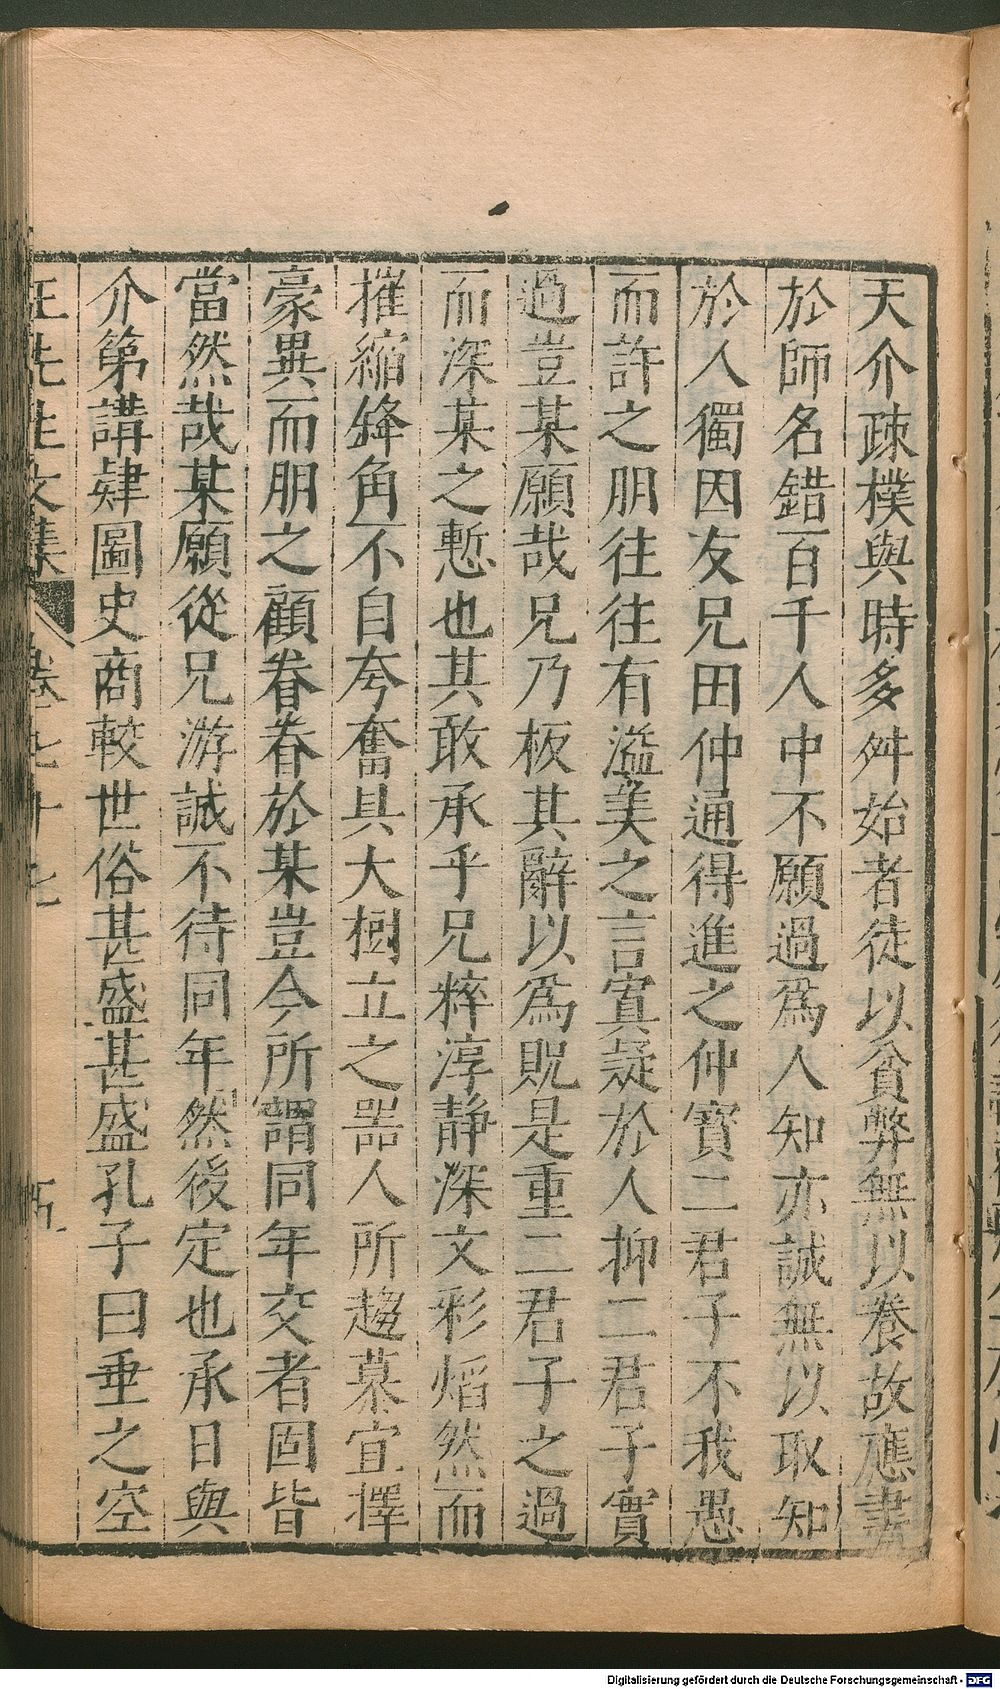 天介疎樸與時多舛始者徒以貧弊無以養故應書
於師名錯百千人中不願過爲人知亦誠無以取知
於人獨因友兄田仲通得進之仲寳二君子不我愚
而許之朋往往有溢美之言寔疑於人抑二君子實
過豈某願哉兄乃板其辭以爲貺是重二君子之過
而深某之慙也其敢承乎兄粹淳静深文彩熖然而
摧縮鋒角不自夸奮具大樹立之器人所趨慕宜擇
豪異而朋之顧眷眷於某豈今所謂同年交者固皆
當然哉某願從兄游誠不待同年然後定也承日與
介第講肄圖史商較世俗甚盛甚盛孔子曰垂之空
王先生文集 卷七十七 五
Digitalisierung gefördert durch die Deutsche Forschungsgemeinschaft - DFG